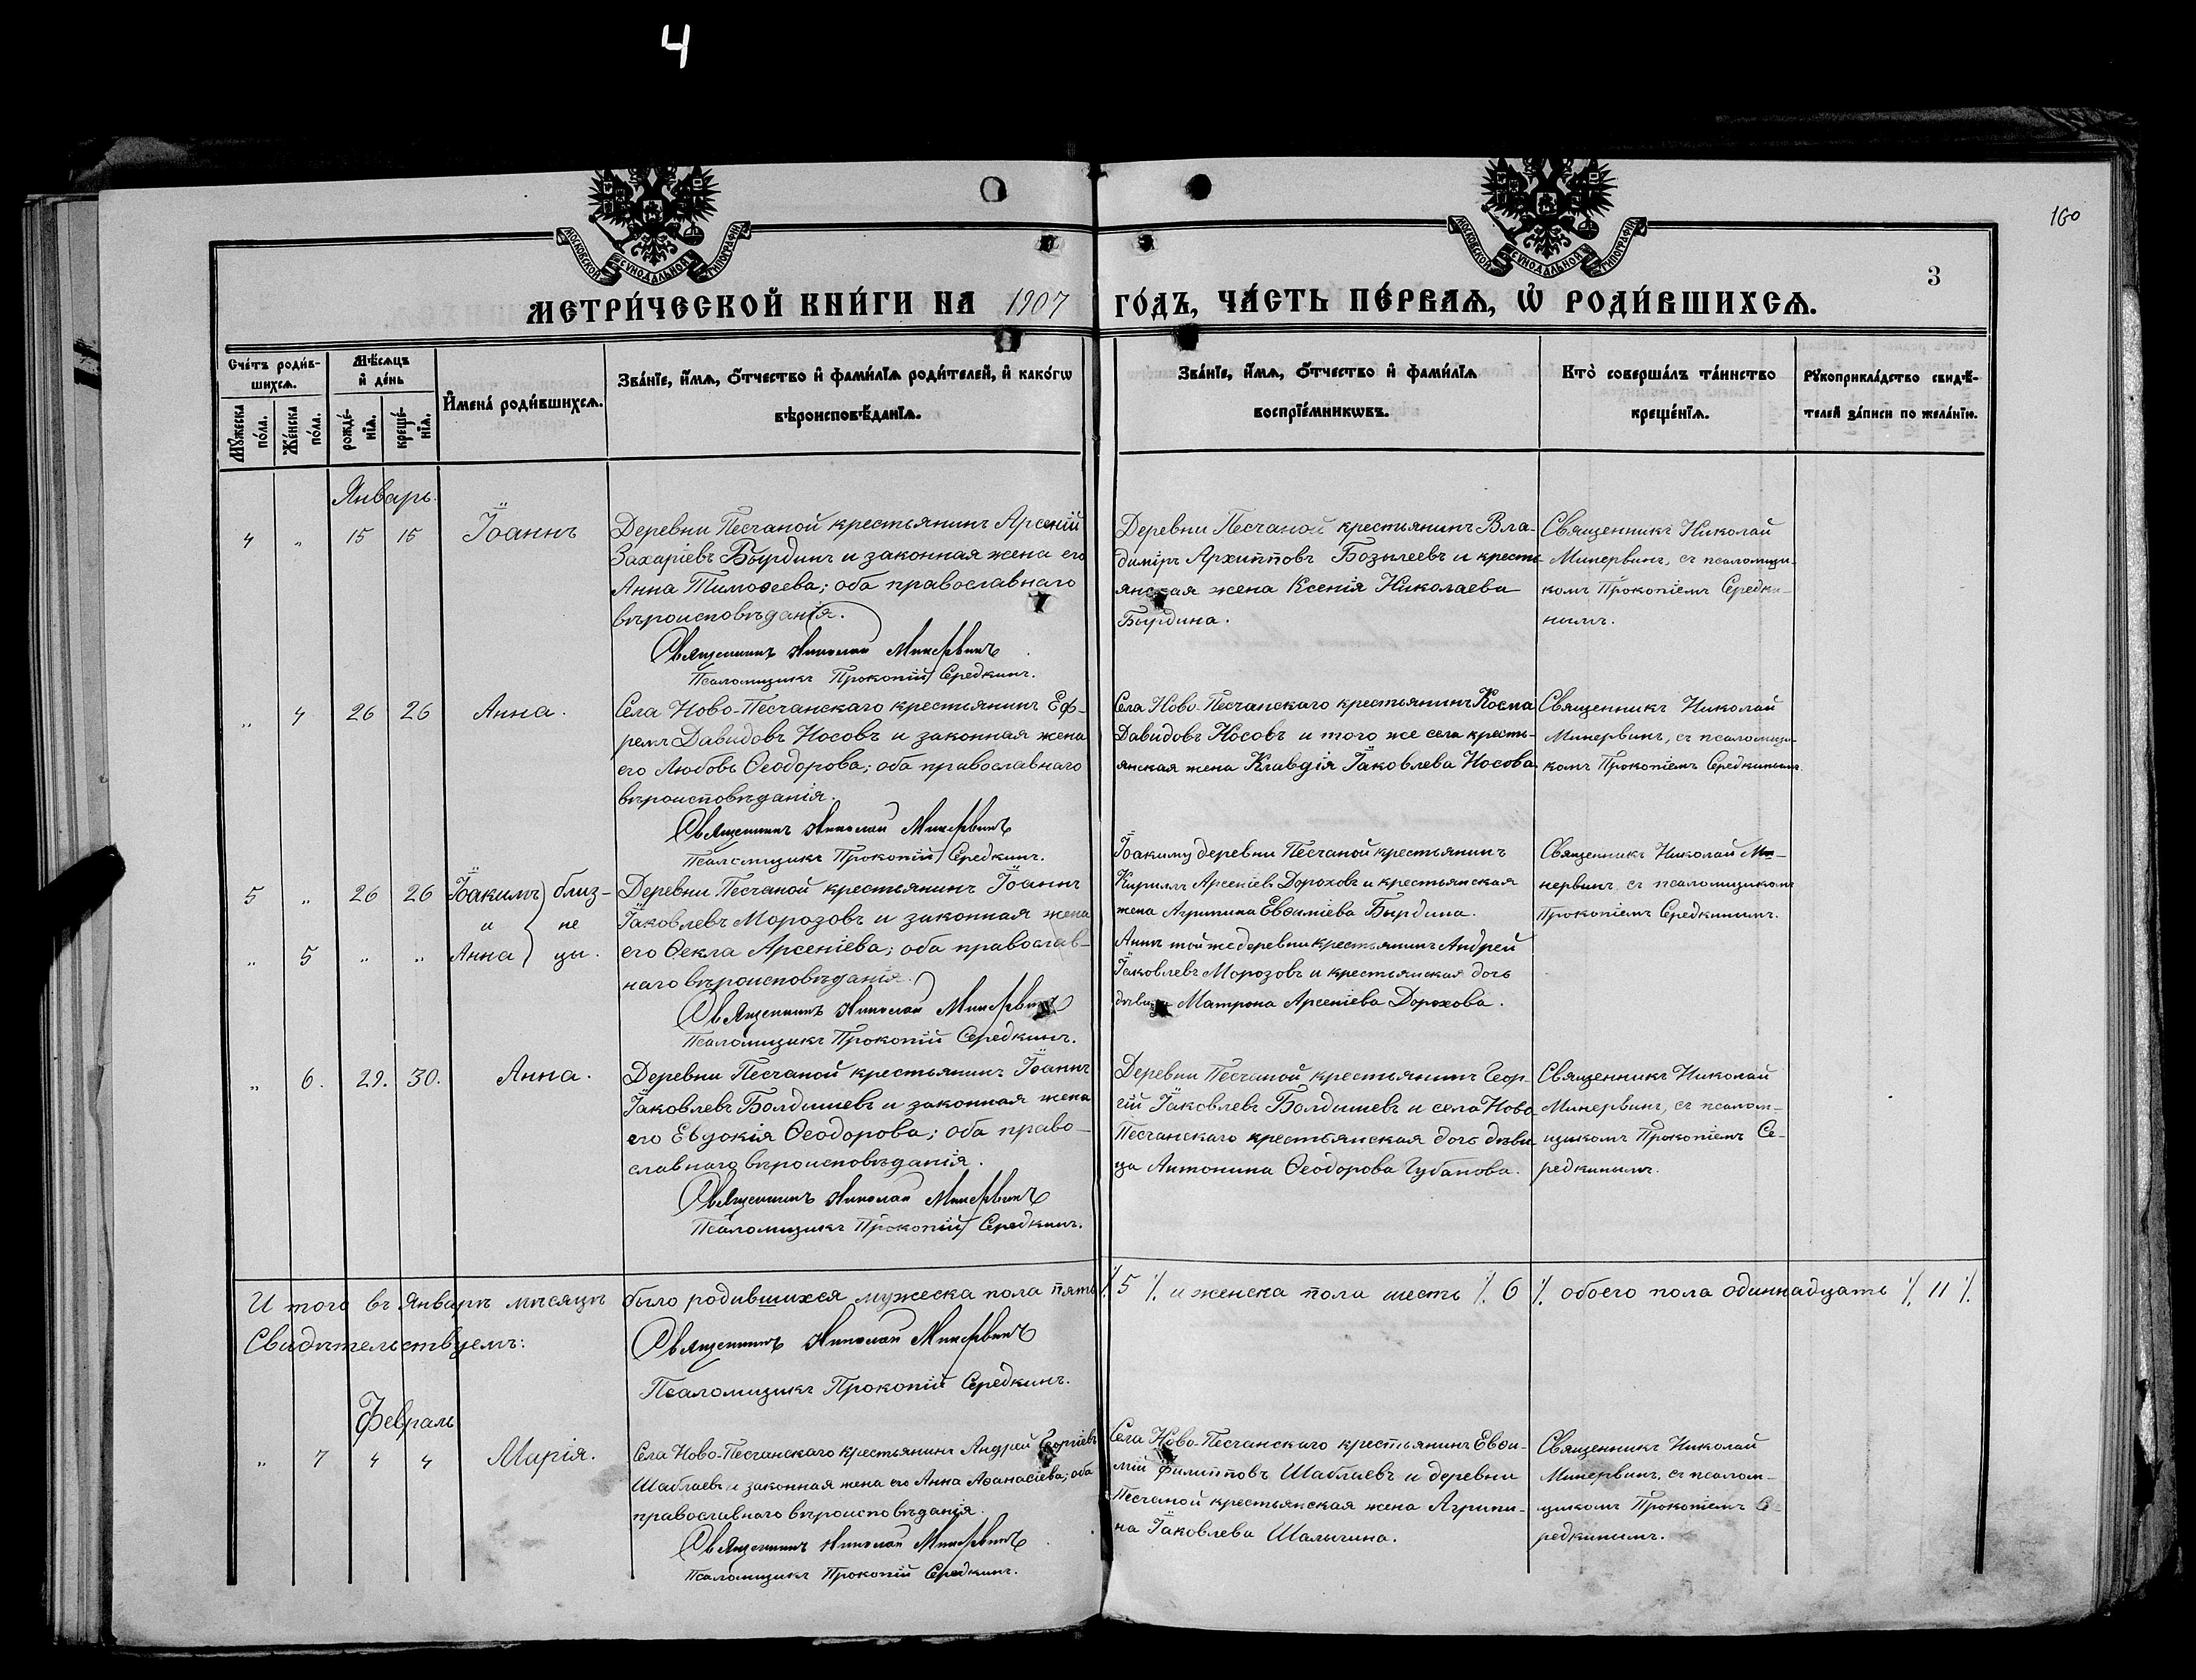 4
160
3
МОСКОВСКОЙ СУНОДАЛЬНОЙ ТИПОГРАФІИ
МОСКОВСКОЙ СУНОДАЛЬНОЙ ТИПОГРАФІИ
МЕТРИ́ЧЕСКОЙ КНИ́ГИ НА 1907 ГО́ДЪ, ЧА́СТЬ ПЕ́РВАѦ, Ѡ҆ РОДИ́ВШИХСѦ.
Сче́тъ роди́в-
шихсѧ.
Мꙋ́жеска по́ла.
Же́нска по́ла.
Мѣ́сѧцъ
и҆ де́нь
рожде́-
нїѧ.
креще́-
нїѧ.
И҆мена̀ роди́вшихсѧ.
Зва́нїе, и҆́мѧ, ѻ҆́тчество и҆ фами́лїѧ роди́телей, и҆ како́гѡ
вѣроисповѣ́данїѧ.
Зва́нїе, и҆́мѧ, ѻ҆́тчество и҆ фами́лїѧ
воспрїе́мникѡвъ.
Кто̀ соверша́лъ та́инство
креще́нїѧ.
Рꙋкоприкла́дство свидѣ́-
телей за́писи по жела́нїю.
Январь.
4 „ 15 15 Іоаннъ
Деревни Песчаной крестьянинъ Арсеній
Захаріевъ Бырдинъ и законная жена его
Анна Тимоѳеева; оба православнаго
вѣроисповѣданія.
Священникъ Николай Минервинъ
Псаломщикъ Прокопій Середкинъ.
Деревни Песчаной крестьянинъ Вла-
диміръ Архипповъ Бозылеевъ и кресть-
янская жена Ксенія Николаева
Бырдина.
Священникъ Николай
Минервинъ, съ псаломщи-
комъ Прокопіемъ Середки-
нымъ.
„ 4 26 26 Анна.
Села Ново-Песчанскаго крестьянинъ Еф-
ремъ Давидовъ Носовъ и законная жена
его Любовь Ѳеодорова; оба православнаго
вѣроисповѣданія.
Священникъ Николай Минервинъ
Псаломщикъ Прокопій Середкинъ.
Села Ново-Песчанскаго крестьянинъ Косма
Давидовъ Носовъ и того же села кресть-
янская жена Клавдія Іаковлева Носова
Священникъ Николай
Минервинъ, съ псаломщи-
комъ Прокопіемъ Середкинымъ.
5 „ 26 26 Іоакимъ близ-
и не
„ 5 „ „ Анна цы.
Деревни Песчаной крестьянинъ Іоаннъ
Іаковлевъ Морозовъ и законная жена
его Ѳекла Арсеніева; оба православ-
наго вѣроисповѣданія.
Священникъ Николай Минервинъ
Псаломщикъ Прокопій Середкинъ.
Іоакиму деревни Песчаной крестьянинъ
Кириллъ Арсеніевъ Дороховъ и крестьянская
жена Агрипина Евѳиміева Бырдина.
Аннѣ той же деревни крестьянинъ Андрей
Іаковлевъ Морозовъ и крестьянская дочь
дѣвица Матрона Арсеніева Дорохова.
Священникъ Николай Ми-
нервинъ съ псаломщикомъ
Прокопіемъ Середкинымъ.
„ 6. 29. 30. Анна.
Деревни Песчаной крестьянинъ Іоаннъ
Іаковлевъ Болдышевъ и законная жена
его Евдокія Ѳеодорова; оба право-
славнаго вѣроисповѣданія.
Священникъ Николай Минервинъ
Псаломщикъ Прокопій Середкинъ.
Деревни Песчаной крестьянинъ Геор-
гій Іаковлевъ Болдышевъ и села Ново-
Песчанскаго крестьянская дочь дѣви-
ца Антонина Ѳеодорова Губанова.
Священникъ Николай
Минервинъ, съ псалом-
щикомъ Прокопіемъ Се-
редкинымъ.
И того въ Январѣ мѣсяцѣ было родившихся мужеска пола пять ٪ 5 ٪ и женска пола шесть ٪ 6 ٪ обоего пола одиннадцать ٪ 11 ٪
Свидѣтельствуемъ:
Священникъ Николай Минервинъ
Псаломщикъ Прокопій Середкинъ.
Февраль
„ 7 4 4 Марія.
Села Ново-Песчанскаго крестьянинъ Андрей Георгіевъ
Шаблаевъ и законная жена его Анна Аѳанасіева; оба
православнаго вѣроисповѣданія.
Священникъ Николай Минервинъ
Псаломщикъ Прокопій Середкинъ.
Села Ново-Песчанскаго крестьянинъ Евѳи-
мій Филипповъ Шаблаевъ и деревни
Песчаной крестьянская жена Агрипи-
на Іаковлева Шалыгина.
Священникъ Николай
Минервинъ, съ псалом-
щикомъ Прокопіемъ Се-
редкинымъ.